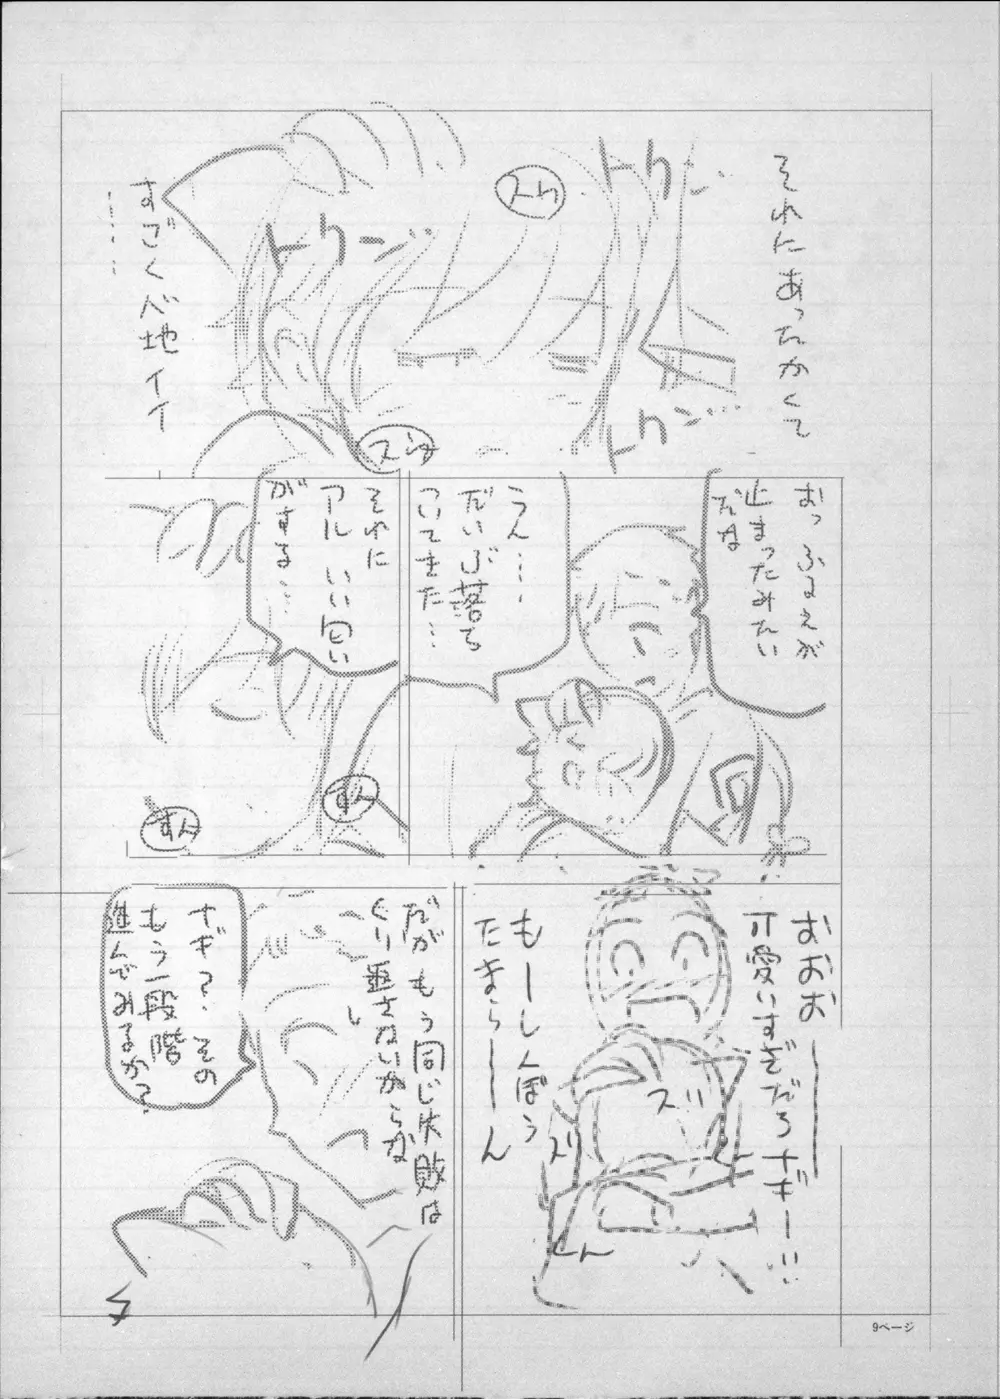 それにあったかくて
トクン…
スウ
トクン…
トクン…
スウ
すごく心地イイ
……
おっ ふるえが
止まったみたい
だな
うん……
だいぶ落ち
ついてきた…
それに
アル いい匂い
がする…
すん
すん
おおおーー
可愛いすぎだろナギー…!!
もーしんぼう
たまらーーん
スリ
スリ
だが もう同じ失敗は
くり返さないからな
ナギ?.その
もう一段階
進んでみるか?
9ページ